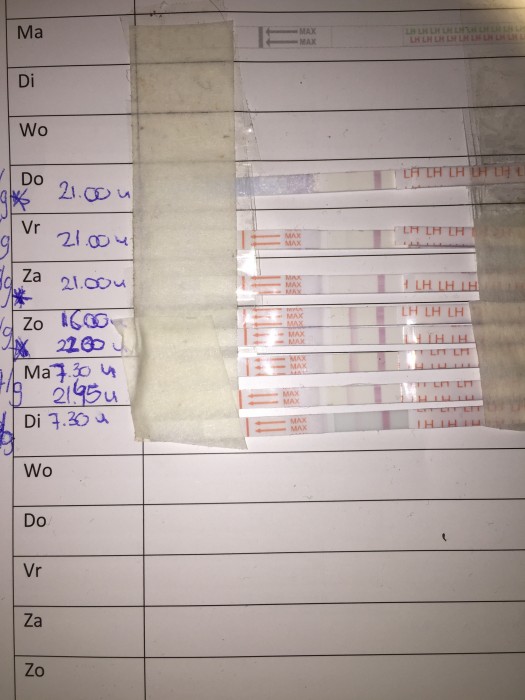 Ma MAX LH LH LH LH LH LH
MAX LH LH LH LH LH LH
Di
Wo
Do 21.00 u LH LH LH LH LH
Vr 21.00 u MAX LH LH LH LH
MAX
Za 21.00 u MAX LH LH LH
MAX
Zo 16.00 MAX LH LH LH
MAX
22.00 u MAX
MAX
Ma 7.30 u MAX
MAX
21.45 u MAX
MAX
Di 7.30 u MAX
MAX LH LH LH
Wo
Do
Vr
Za
Zo